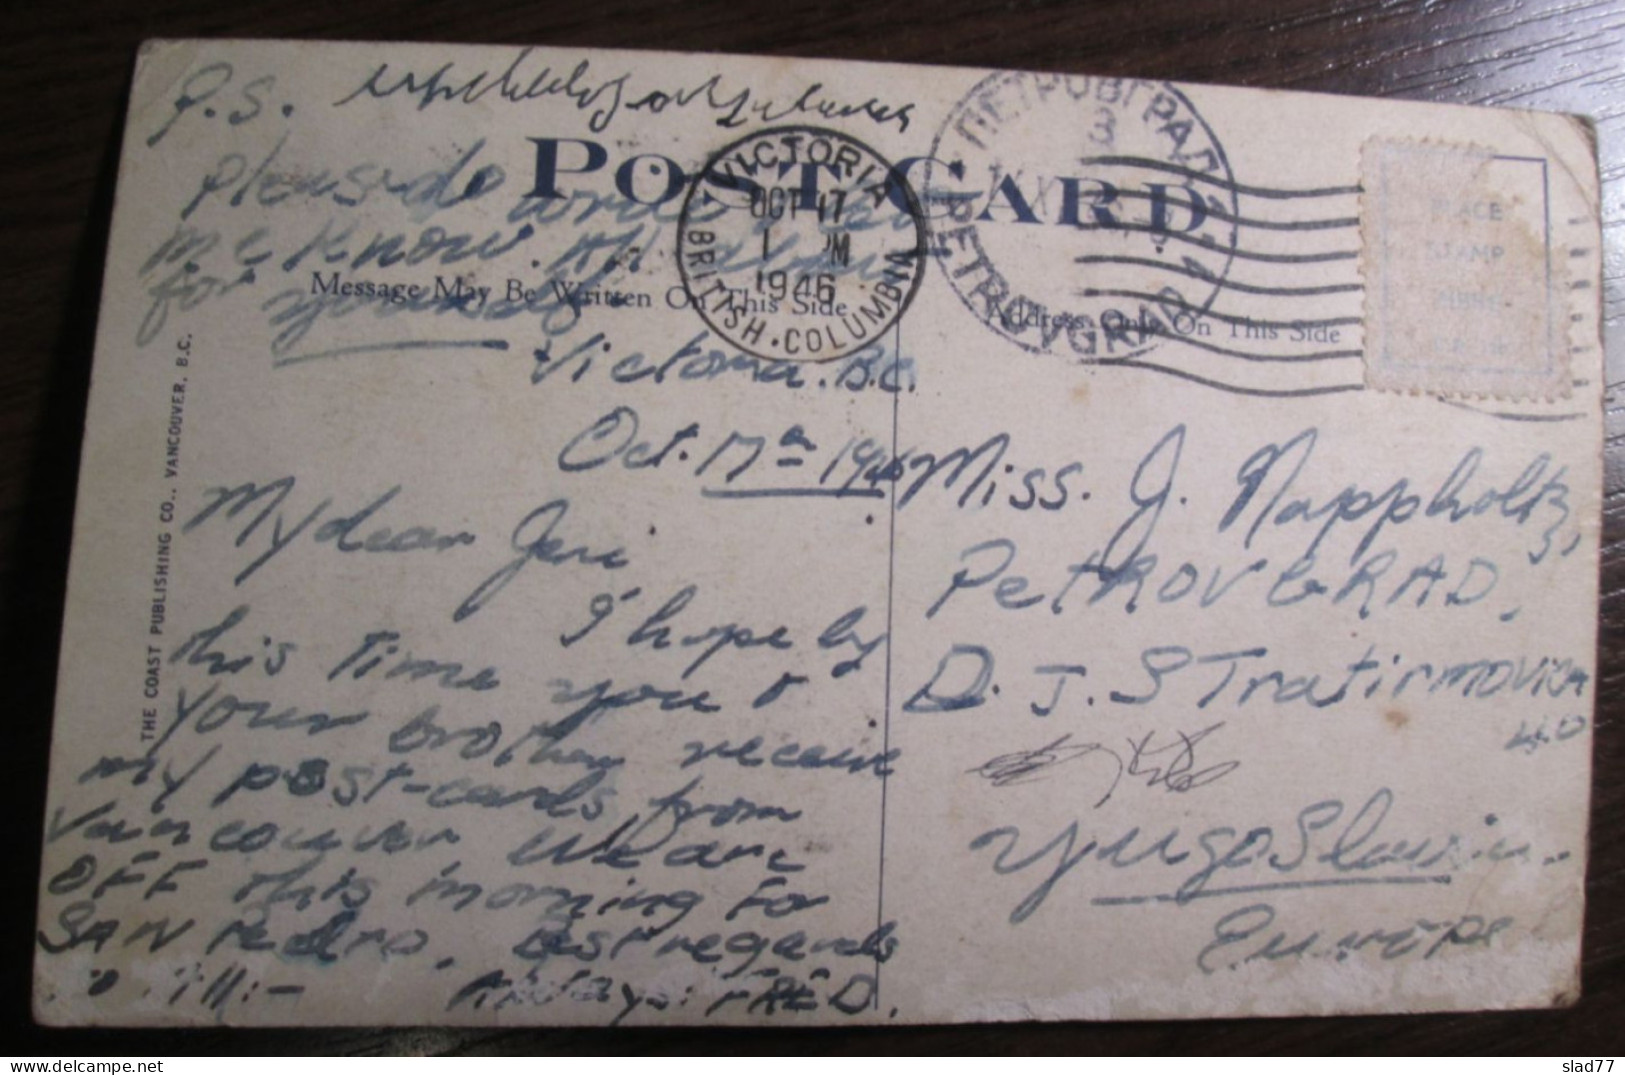 P.S.
Please do write & let
me know. All
for yourself
POST CARD
Message May Be Written On This Side
Address Only On This Side
VICTORIA
OCT 17
1 PM
1946
BRITISH · COLUMBIA
ПЕТРОВГРАД
PETROVGRAD
PLACE
STAMP
HERE
THE COAST PUBLISHING CO., VANCOUVER, B.C.
Victoria. B.C.
Oct. 17th 1946
My dear Jeni
I hope by
this time you &
your brother receive
my post-cards from
Vancouver we are
OFF this morning FOR
SAN Pedro. Best regards
to All:-
Always: FRED.
Miss. J. Nappholtz,
PeTROVGRAD.
D. J. STratimirovica
YugoSlavia.
Europe
slad77